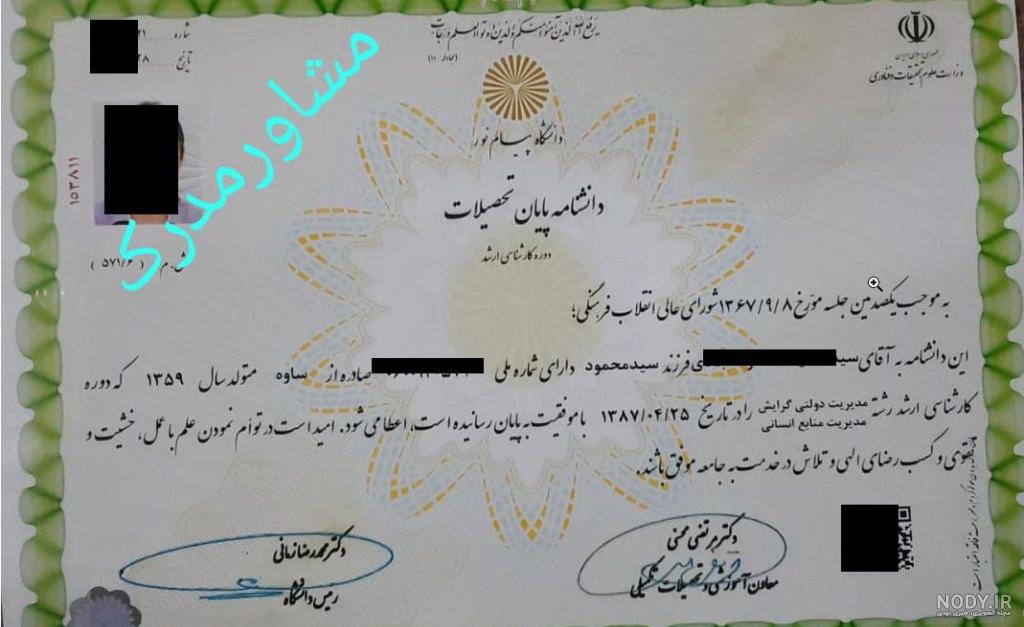 یرفع الله الذین آمنوا منکم والذین اوتوا العلم درجات
(مجادله ۱۱)
جمهوری اسلامی ایران
وزارت علوم تحقیقات و فناوری
شماره
تاریخ
دانشگاه پیام نور
دانشنامه پایان تحصیلات
دوره کارشناسی ارشد
۱۵۳۸۱۱
ش.م. ( ۵۷۱/۶ )
مشاور مدرک
به موجب یکصدمین جلسه مورخ ۱۳۶۷/۹/۸ شورای عالی انقلاب فرهنگی؛
این دانشنامه به آقای سید فرزند سیدمحمود دارای شماره ملی صادره از ساوه متولد سال ۱۳۵۹ که دوره
کارشناسی ارشد رشته مدیریت دولتی گرایش مدیریت منابع انسانی را در تاریخ ۱۳۸۷/۰۴/۲۵ با موفقیت به پایان رسانیده است، اعطا می شود. امید است در توأم نمودن علم با عمل، خشیت و
تقوی و کسب رضای الهی و تلاش در خدمت به جامعه موفق باشد.
دکتر مرتضی محسنی
معاون آموزشی و تحصیلات تکمیلی
دکتر محمدرضا زمانی
رئیس دانشگاه
NODY.IR